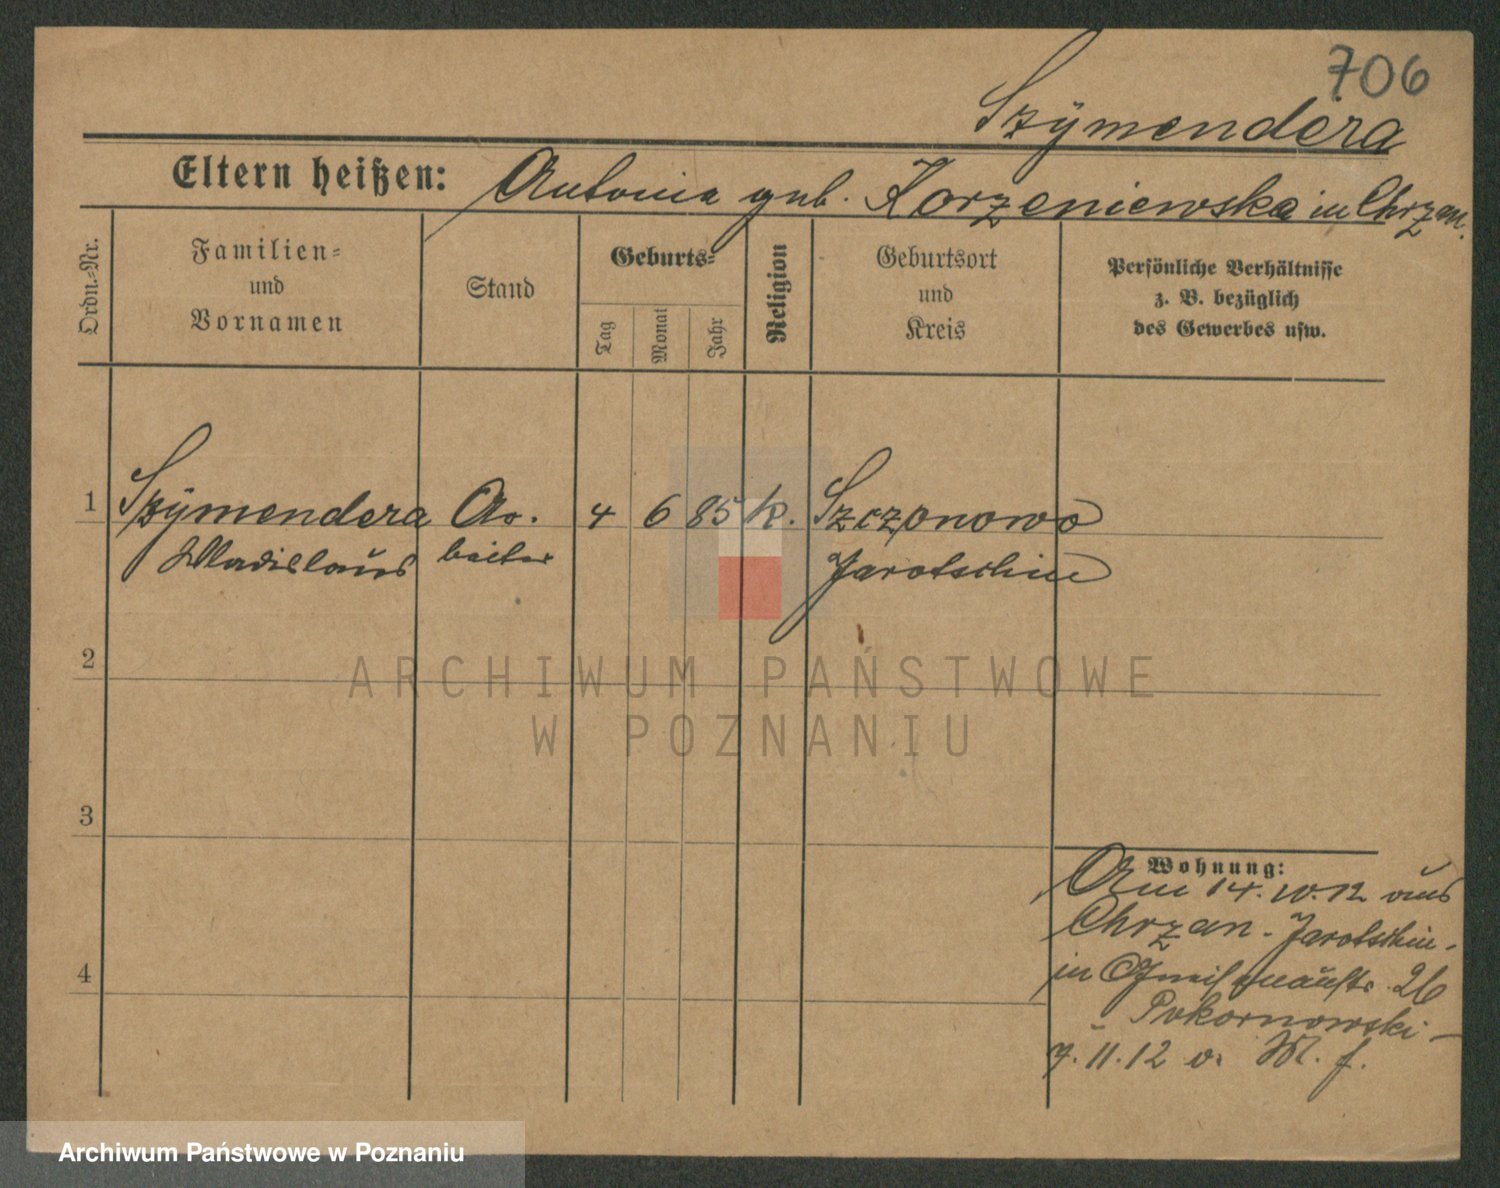 706
Szÿmendera
Eltern heißen: Antonia geb. Korzeniewska in Chrzan.
Ordn.-Nr.
Familien-
und
Vornamen
Stand
Geburts-
Tag
Monat
Jahr
Religion
Geburtsort
und
Kreis
Persönliche Verhältnisse
z. B. bezüglich
des Gewerbes usw.
1 Szÿmendera Ar. 4 6 85 k. Szczonowo
Wladislaus beiter Jarotschin
2
ARCHIWUM PAŃSTWOWE
W POZNANIU
3
Wohnung:
Am 14. 10. 12 aus
Chrzan - Jarotschin -
4
in 26
Pokornowski -
7. 11. 12 v. M. f.
Archiwum Państwowe w Poznaniu